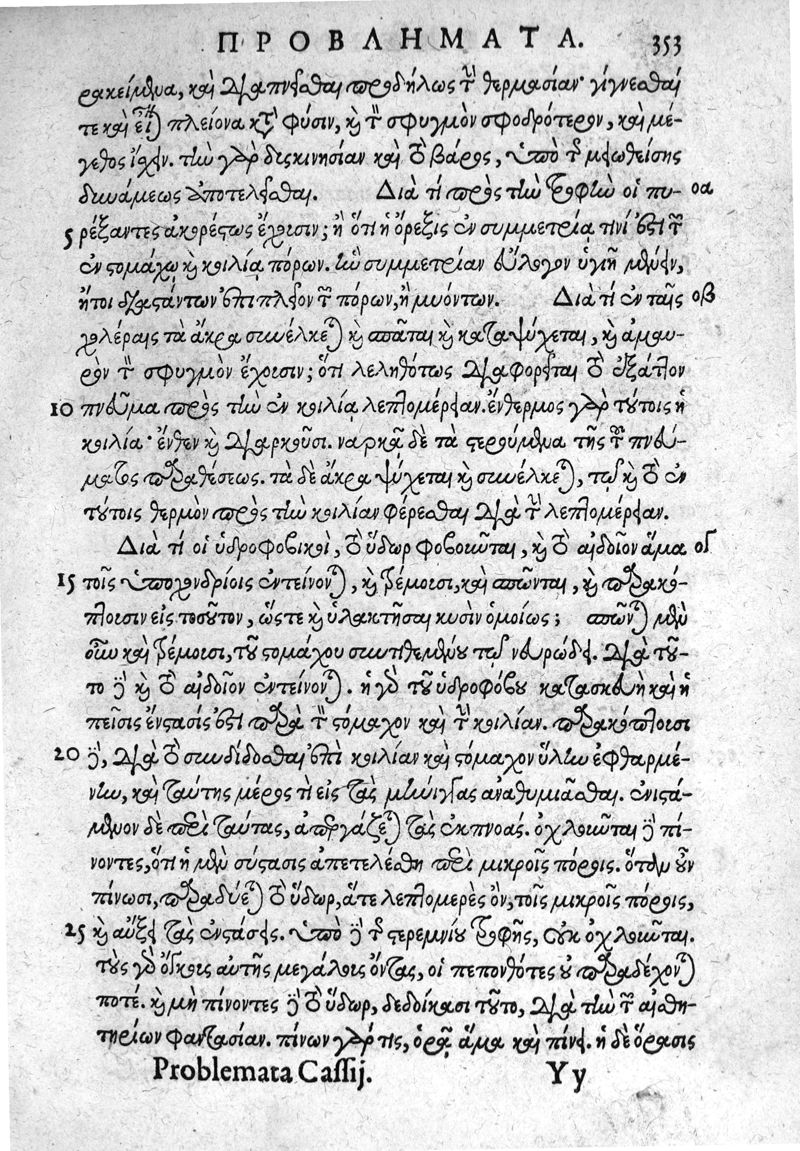 ΠΡΟΒΛΗΜΑΤΑ. 353
ρακείμενα, καὶ διαπνεῖσθαι προδήλως τὴν θερμασίαν· γίγνεσθαί
τε καὶ πλείονα κατὰ φύσιν, καὶ τὸν σφυγμὸν σφοδρότερον, καὶ μέ-
γεθος ἴσχειν. τὴν γὰρ δυσκινησίαν καὶ τὸ βάρος, ὑπὸ τῆς μειωθείσης
δυνάμεως ἀποτελεῖσθαι. Διὰ τί πρὸς τὴν τροφὴν οἱ πυ- οα
5 ρέξαντες ἀκορέστως ἔχουσιν; ἢ ὅτι ἡ ὄρεξις ἐν συμμετρίᾳ τινί ἐστι τῶν
ἐν στομάχῳ καὶ κοιλίᾳ πόρων. ἣν συμμετρίαν εὔλογον ὑγιῆ μένειν,
ἤτοι διαστάντων ἐπιπλεῖον τῶν πόρων, ἢ μυόντων. Διὰ τί ἐν ταῖς οβ
χολέραις τὰ ἄκρα συνέλκεται καὶ σπᾶται καὶ καταψύχεται, καὶ ἀμαυ-
ρὸν τὸν σφυγμὸν ἔχουσιν; ὅτι λεληθότως διαφορεῖται τὸ ἐξάπλον
10 πνεῦμα πρὸς τὴν ἐν κοιλίᾳ λεπτομέρειαν. ἔνθερμος γὰρ τούτοις ἡ
κοιλία· ἔνθεν καὶ διαρκοῦσι. ναρκᾷ δὲ τὰ στερούμενα τῆς τῶν πνευ-
μάτων παραθέσεως. τὰ δὲ ἄκρα ψύχεται καὶ συνέλκεται, τῷ καὶ τὸ ἐν
τούτοις θερμὸν πρὸς τὴν κοιλίαν φέρεσθαι διὰ τὴν λεπτομέρειαν.
Διὰ τί οἱ ὑδροφοβικοὶ, τὸ ὕδωρ φοβοῦνται, καὶ τὸ αἰδοῖον ἅμα ογ
15 τοῖς ὑποχονδρίοις ἐντείνονται, καὶ τρέμουσι, καὶ σπῶνται, καὶ παρακό-
πτουσιν εἰς τοσοῦτον, ὥστε καὶ ὑλακτῆσαι κυσὶν ὁμοίως; σπῶνται μὲν
οὖν καὶ τρέμουσι, τοῦ στομάχου συντιθεμένου τῷ νευρώδει. διὰ τοῦ-
το δὲ καὶ τὸ αἰδοῖον ἐντείνονται. ἡ γὰρ τοῦ ὑδροφόβου κατασκευὴ καὶ ἡ
πεῖσις ἔνστασίς ἐστι παρὰ τὸν στόμαχον καὶ τὴν κοιλίαν. παρακόπτουσι
20 δὲ, διὰ τὸ συνδίδοσθαι ἐπὶ κοιλίαν καὶ στόμαχον ὕλην ἐφθαρμέ-
νην, καὶ ταύτης μέρος τὶ εἰς τὰς μήνιγγας ἀναθυμιᾶσθαι. ἐνιστά-
μενον δὲ περὶ ταύτας, ἀπεργάζεται τὰς ἐκπνοάς. ὀχλοῦνται δὲ πί-
νοντες, ὅτι ἡ μὲν σύστασις ἀπετελέσθη περὶ μικροῖς πόροις. ὅταν οὖν
πίνωσι, παραδύεται τὸ ὕδωρ, ἅτε λεπτομερὲς ὂν, τοῖς μικροῖς πόροις,
25 καὶ αὔξει τὰς ἐνστάσεις. ὑπὸ δὲ τῆς στερεμνίου τροφῆς, οὐκ ὀχλοῦνται.
τοὺς γὰρ ὄγκους αὐτῆς μεγάλους ὄντας, οἱ πεπονθότες οὐ παραδέχονται
ποτέ. καὶ μὴ πίνοντες δὲ τὸ ὕδωρ, δεδοίκασι τοῦτο, διὰ τὴν τῶν αἰσθη-
τηρίων φαντασίαν. πίνων γάρ τις, ὁρᾷ ἅμα καὶ πίνει. ἡ δὲ ὅρασις
Problemata Cassij. Y y